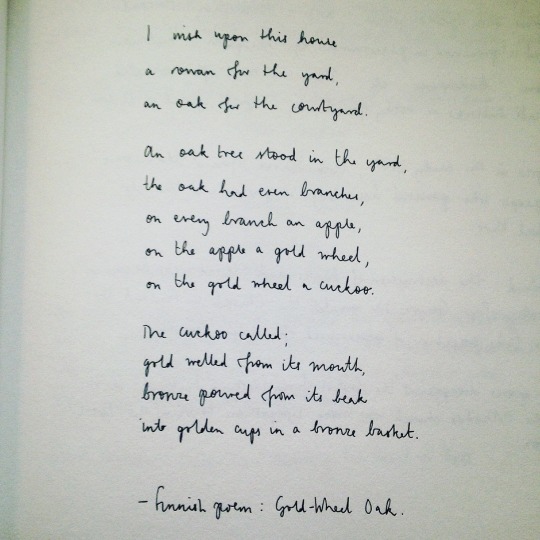 I wish upon this house
a rowan for the yard,
an oak for the courtyard.
An oak tree stood in the yard,
the oak had even branches,
on every branch an apple,
on the apple a gold wheel,
on the gold wheel a cuckoo.
The cuckoo called;
gold welled from its mouth,
bronze poured from its beak
into golden cups in a bronze basket.
- Finnish poem : Gold-Wheel Oak.